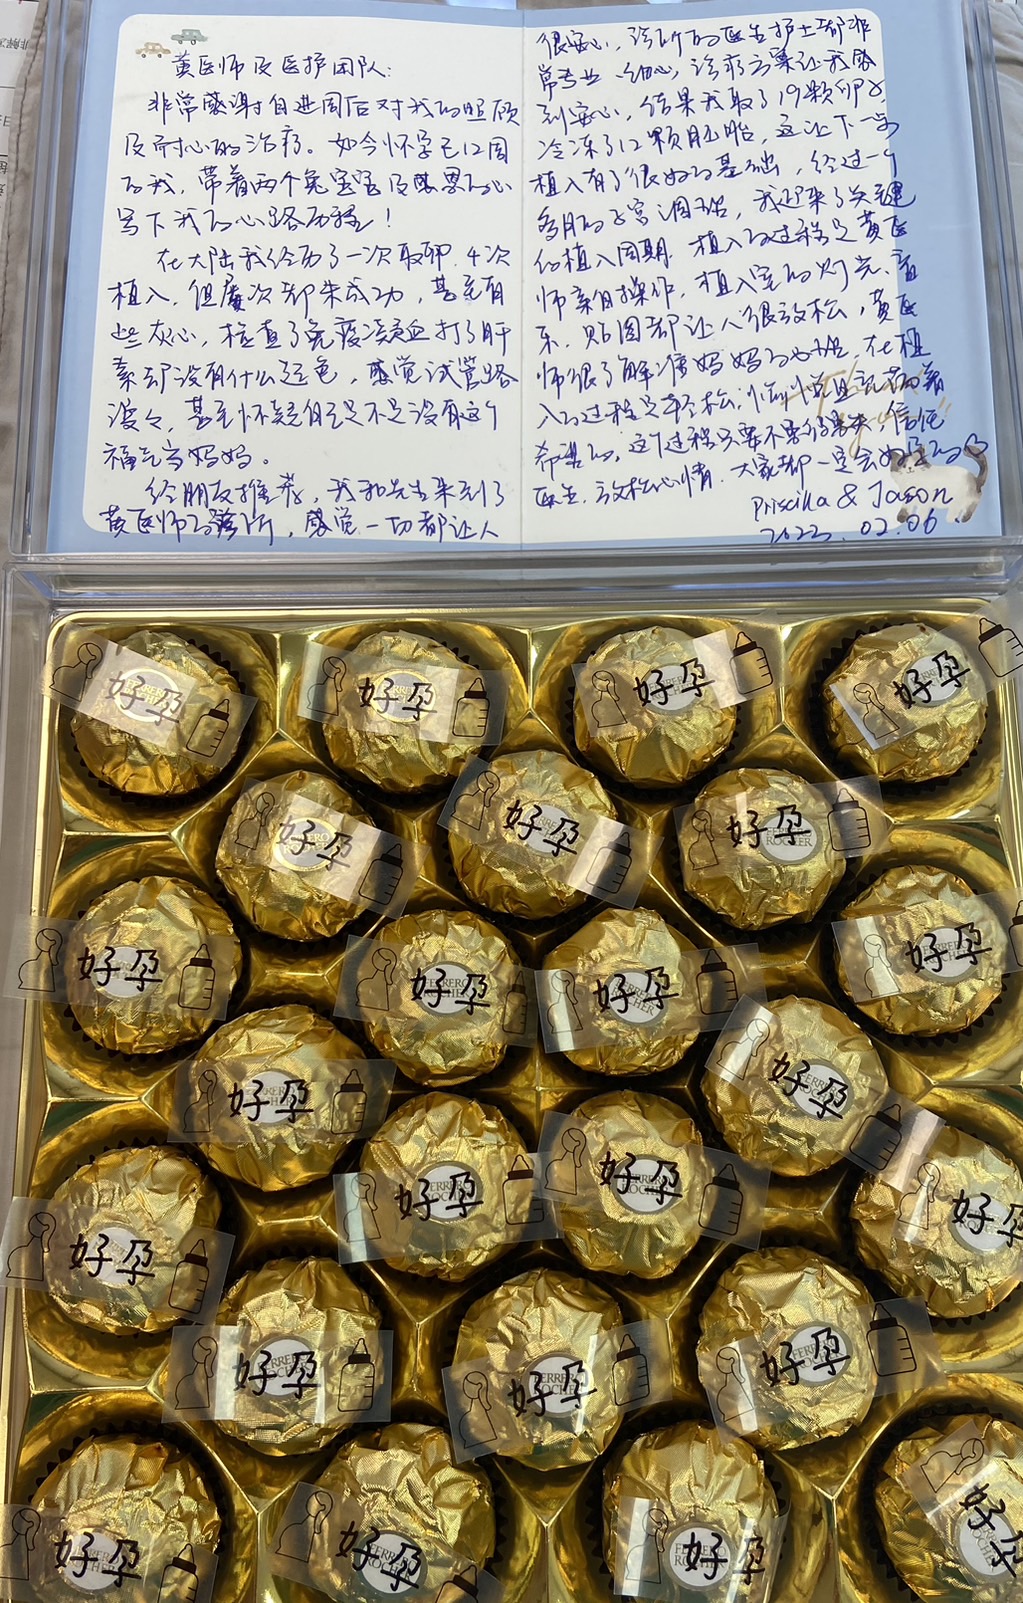 黄医师及医护团队：
非常感谢自进周后对我的照顾
及耐心的治疗。如今怀孕已12周
的我，带着两个兔宝宝及感恩的心
写下我的心路历程！
在大陆我经历了一次取卵，4次
植入，但屡次却未成功，甚至有
些灰心，检查了免疫凝血打了肝
素却没有什么起色，感觉试管路
漫々，甚至怀疑自己是不是没有这个
福气当妈妈。
经朋友推荐，我和先生来到了
黄医师的诊所，感觉一切都让人
很安心，诊所的医生护士都非
常专业、细心，诊疗方案让我感
到安心，结果我取了19颗卵子
冷冻了12颗胚胎，这让下一步
植入有了很好的基础，经过一个
多月的子宫调理，我迎来了关键
的植入周期，植入的过程是黄医
师亲自操作，植入室的灯光、音
乐、贴图都让人很放松，黄医
师很了解准妈妈的心理，在植
入的过程是轻松、愉悦且充满着
希望的，这个过程只要不要多想，信任
医生，放松心情，大家都一定会好孕的♡
Priscilla & Jason
2023.02.06
好孕
FERRERO
好孕
好孕
好孕
好孕
好孕
好孕
ROCHER
好孕
好孕
FERRERO
ROCHER
好孕
FERRERO
ROCHER
好孕
好孕
好孕
好孕
好孕
好孕
好孕
好孕
好孕
好孕
好孕
好孕
好孕
好孕